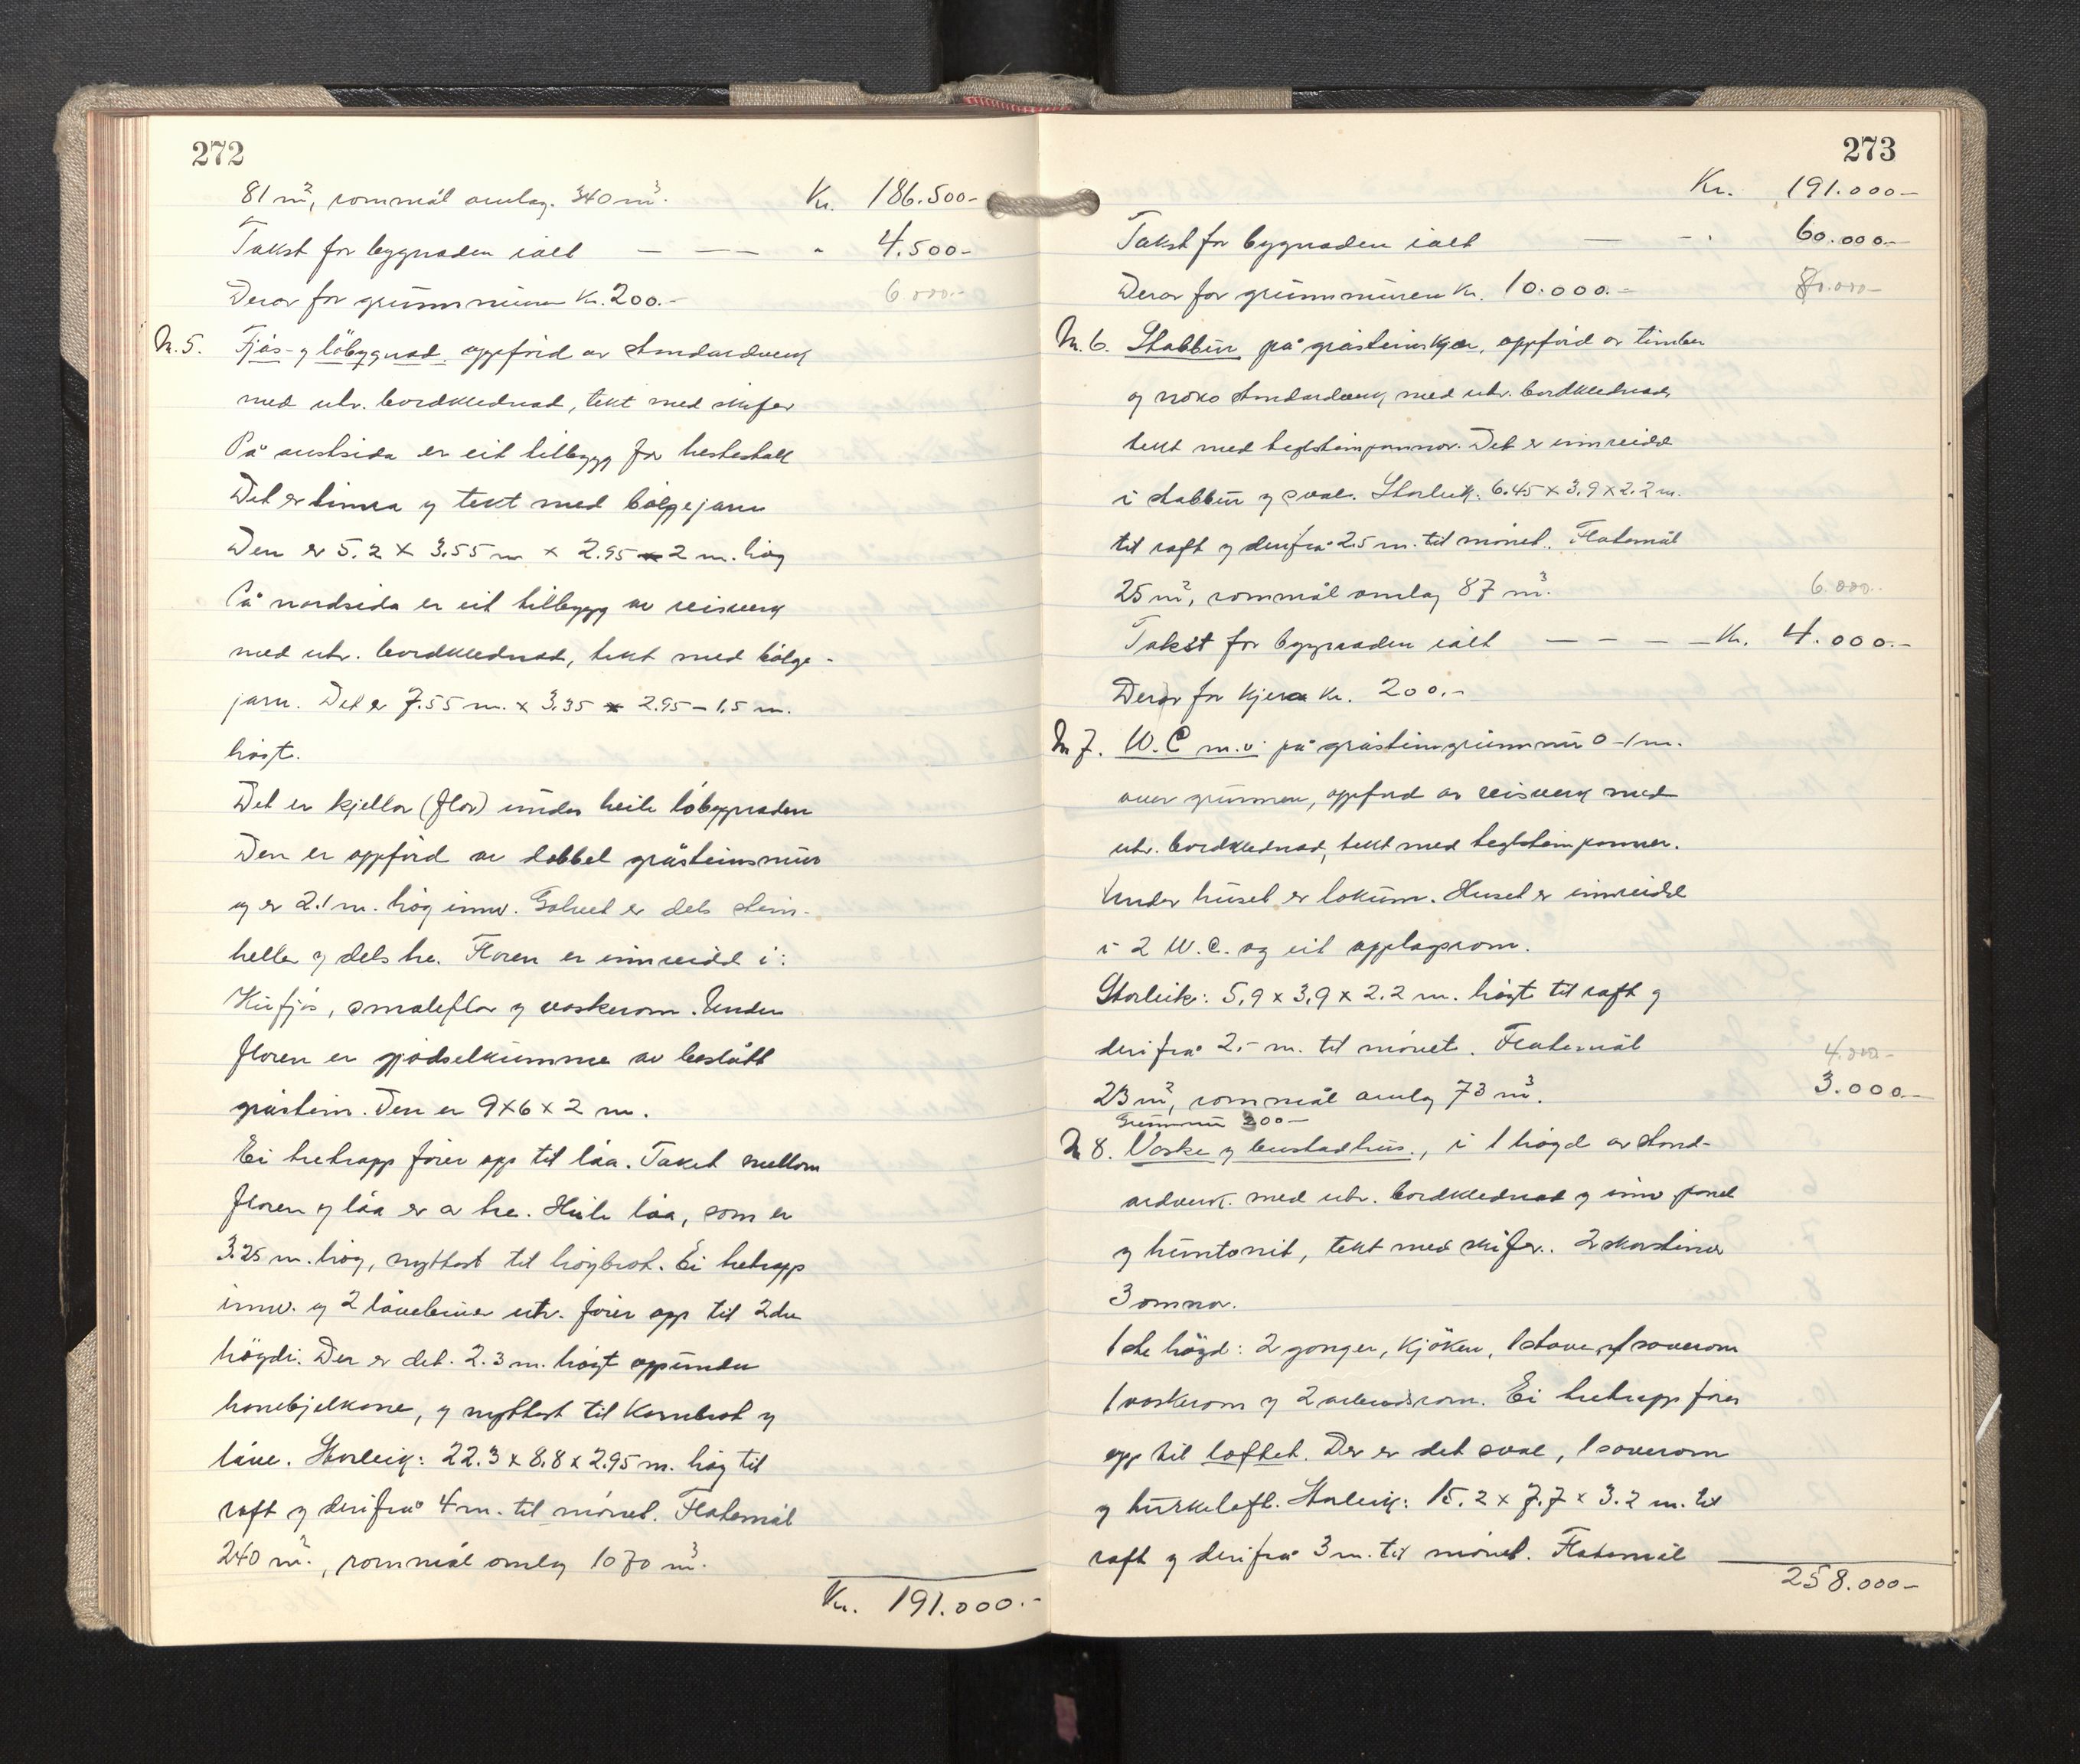 272
81 m², rommål omlag. 340 m³. Kr. 186.500-
Takst for bygnaden ialt — — — " 4.500-
Derav for grunnmuren Kr. 200.- 6.000.-
Nr. 5. Fjøs- og løbygnad, oppförd av standardverk
med utv. bordklednad, tekt med skifer
På austsida er eit tilbygg for hestestall
Det er timra og tekt med bølgejarn
Den er 5.2 x 3.55 m x 2.95 - 2 m. høg
På nordsida er eit tilbygg av reisverk
med utv. bordklednad, tekt med bølge-
jarn. Det er 7.55 m. x 3.35 x 2.95 - 1.5 m.
høgt.
Det er kjellar (flor) under heile løbygnaden
Den er oppförd av dobbel gråsteinsmur
og er 2.1 m. høg innv. Golvet er dels stein-
heller og dels tre. Floren er innreidd i:
Kufjøs, smaleflor og vaskerom. Under
floren er gjødselkumme av
gråstein. Den er 9x6x2 m.
Ei tretrapp förer opp til låa. Taket mellom
floren og låa er av tre. Heile låa, som er
3.25 m. høg, nyttast til høybrot. Ei tretrapp
innv. og 2 låvebruer utv. förer opp til 2dre
högdi. Der er det. 2.3 m. høgt oppunder
hanebjelkane, og nyttast til Kornbrot og
låve. Storleik: 22.3 x 8.8 x 2.95 m. høg til
raft og derifrå 4 m. til mønet. Flatemål
240 m², rommål omlag 1070 m³.
Kr. 191.000.-
273
Kr. 191.000-
Takst for bygnaden ialt — - . 60.000.-
Derav for grunnmuren Kr. 10.000.- 80.000-
Nr. 6. Stabbur på gråsteinskjer, oppförd av timber
og noko standardverk, med utv. bordklednad,
tekt med teglsteinpannor. Det er innreidd
i stabbur og sval. Storleik: 6.45 x 3.9 x 2.2 m.
til raft og derifrå 2.5 m. til mønet. Flatemål
25 m², rommål omlag 87 m³. 6.000.-
Takst for bygnaden ialt — — — — Kr. 4.000.-
Derav for kjer Kr. 200.-
Nr 7. W.C m.v. på gråsteinsgrunnmur 0-1 m.
over grunnen, oppförd av reisverk med
utv. bordklednad, tekt med teglsteinpanner.
Under huset er lokum. Huset er innreidd
i 2 W.C. og eit opplagsrom.
Storleik: 5,9 x 3,9 x 2.2 m. høgt til raft og
derifrå 2.- m. til mønet. Flatemål 4.000-
23 m², rommål omlag 73 m³. 3.000.-
Grunnmur 300-
Nr 8. Vaske og bustadhus., i 1 høgd av stand-
ardverk. med utv. bordklednad og innv panel
og huntonit, tekt med skifer. 2 skorsteiner
3 omnar.
1ste høgd: 2 gonger, kjøken, 1 stove, 1 soverom
1 vaskerom og 2 arbeidsrom. Ei tretrapp förer
opp til loftet. Der er det sval, 1 soverom
og turkeloft. Storleik: 15.2 x 7.7 x 3.2 m. til
raft og derifrå 3 m. til mønet. Flatemål
258.000-